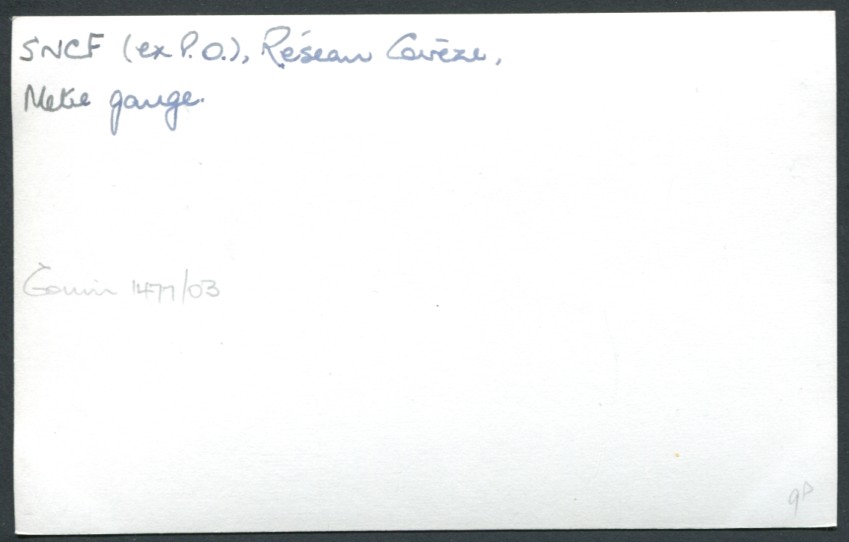 SNCF (ex P.O.), Réseau Corrèze,
Metre gauge.
Gouin 1477/03